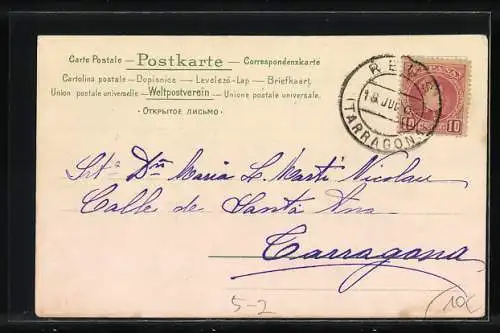 Carte Postale — Postkarte — Correspondenzkarte
Cartolina postale — Dopisnice — Levelező-Lap — Briefkaart
Union postale universelle — Weltpostverein — Unione postale universale.
· ОТКРЫТОЕ ПИСЬМО ·
REUS
18 JUL
(TARRAGONA)
10 10
Srta Dña Maria L. Martí Nicolau
Calle de Santa Ana
Tarragona
5-2
10€